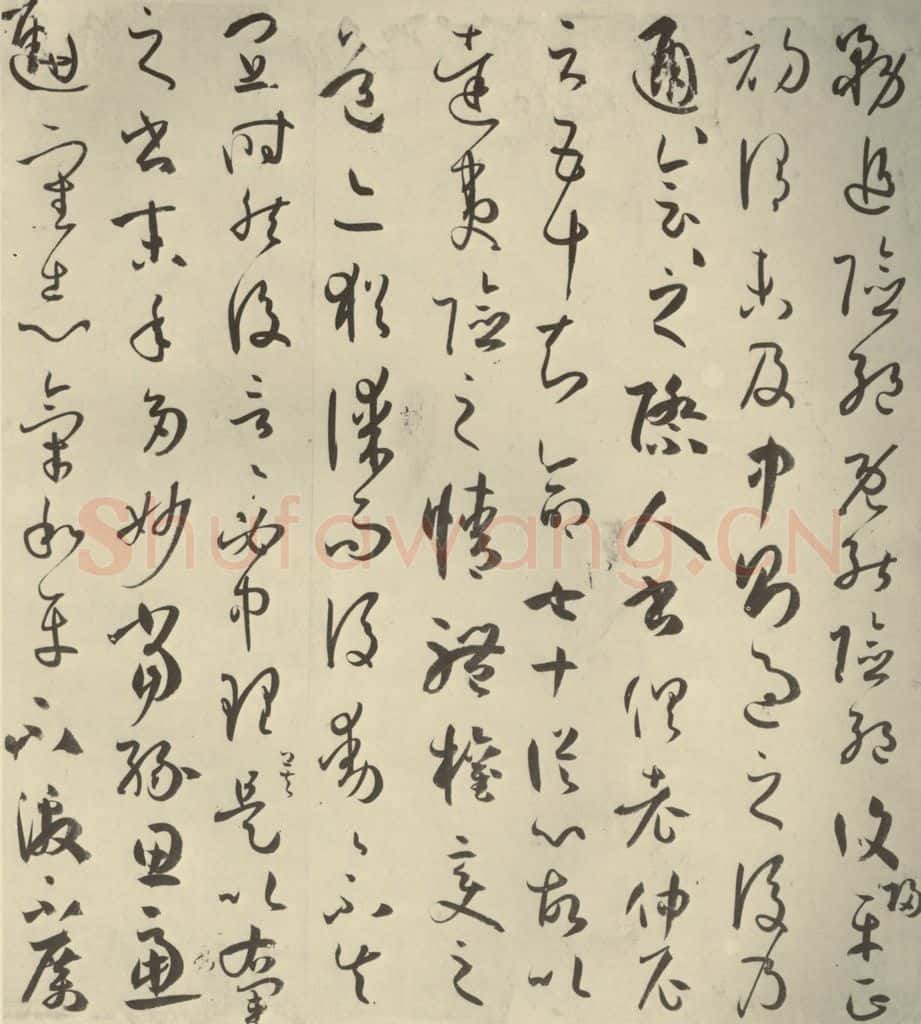 務追險絕既能險絕復歸平正
初謂未及中則過之後乃
通〻會〻之際人書俱老仲尼
云五十知命七十從心故以
達夷險之情體權變之
道亦猶謀而後動〻不失
宜時然後言〻必中理矣是以右軍
之書末年多妙當緣思慮
通審志氣和平不激不厲
Shufawang.CN